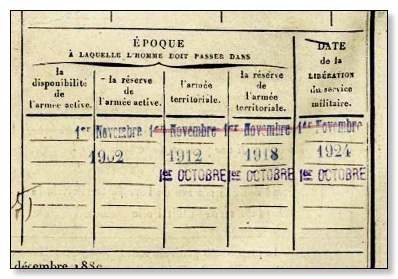 ÉPOQUE
À LAQUELLE L'HOMME DOIT PASSER DANS
DATE
de la
LIBÉRATION
du service
militaire.
la
disponibilité
de
l'armée active.
la réserve
de
l'armée active.
l'armée
territoriale.
la réserve
de
l'armée
territoriale.
1er Novembre 1er Novembre 1er Novembre 1er Novembre
1902 1912 1918 1924
1er OCTOBRE 1er OCTOBRE 1er OCTOBRE
décembre 188